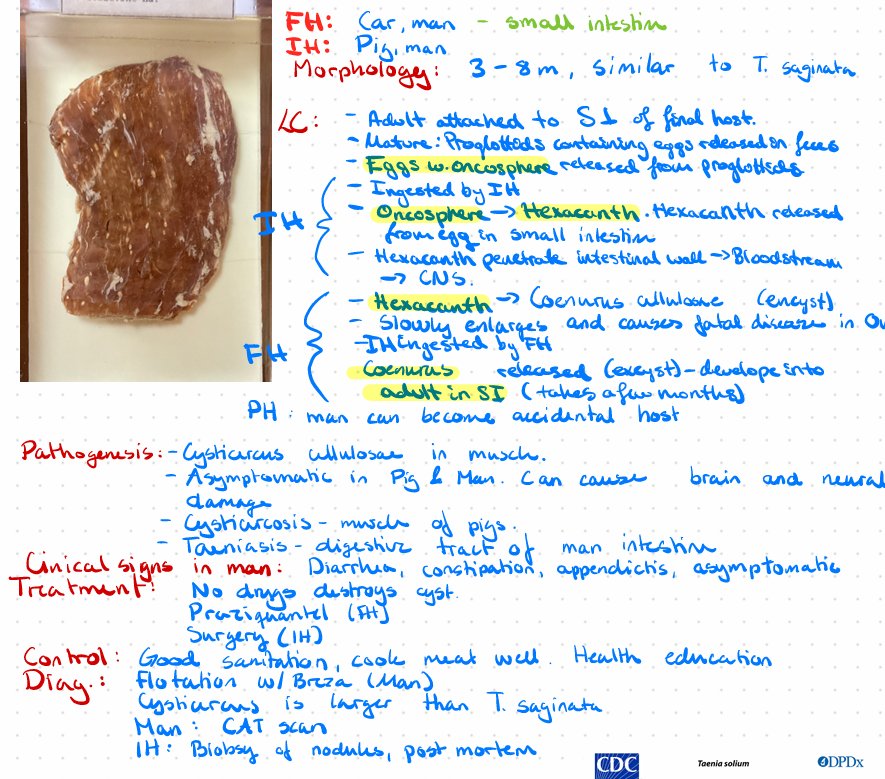 FH: Car, man - small intestin
IH: Pig, man
Morphology: 3-8m, similar to T. saginata
LC: - Adult attached to SI of final host.
- Mature: Proglottids containing eggs released in feces
- Eggs w. oncosphere released from proglottids
IH
- Ingested by IH
- Oncosphere → Hexacanth. Hexacanth released
from egg in small intestin
- Hexacanth penetrate intestinal wall → Bloodstream
→ CNS.
FH
- Hexacanth → Coenurus cellulosae (encyst)
- Slowly enlarges and causes fatal disease in
- IH ingested by FH
Coenurus released (excyst) - develope into
adult in SI (takes a few months)
PH: man can become accidental host
Pathogenesis: - Cysticercus cellulosae in muscle.
- Asymptomatic in Pig & Man. Can cause brain and neural
damage
- Cysticercosis - muscle of pigs.
- Taeniasis - digestive tract of man intestine
Clinical signs in man: Diarrhea, constipation, appendictis, asymptomatic
Treatment: No drugs destroys cyst.
Praziquantel (FH)
Surgery (IH)
Control: Good sanitation, cook meat well. Health education
Diag.: Flotation w/ Breza (Man)
Cysticercus is larger than T. saginata
Man: CAT scan
IH: Biobsy of nodules, post mortem
CDC Taenia solium DPDx